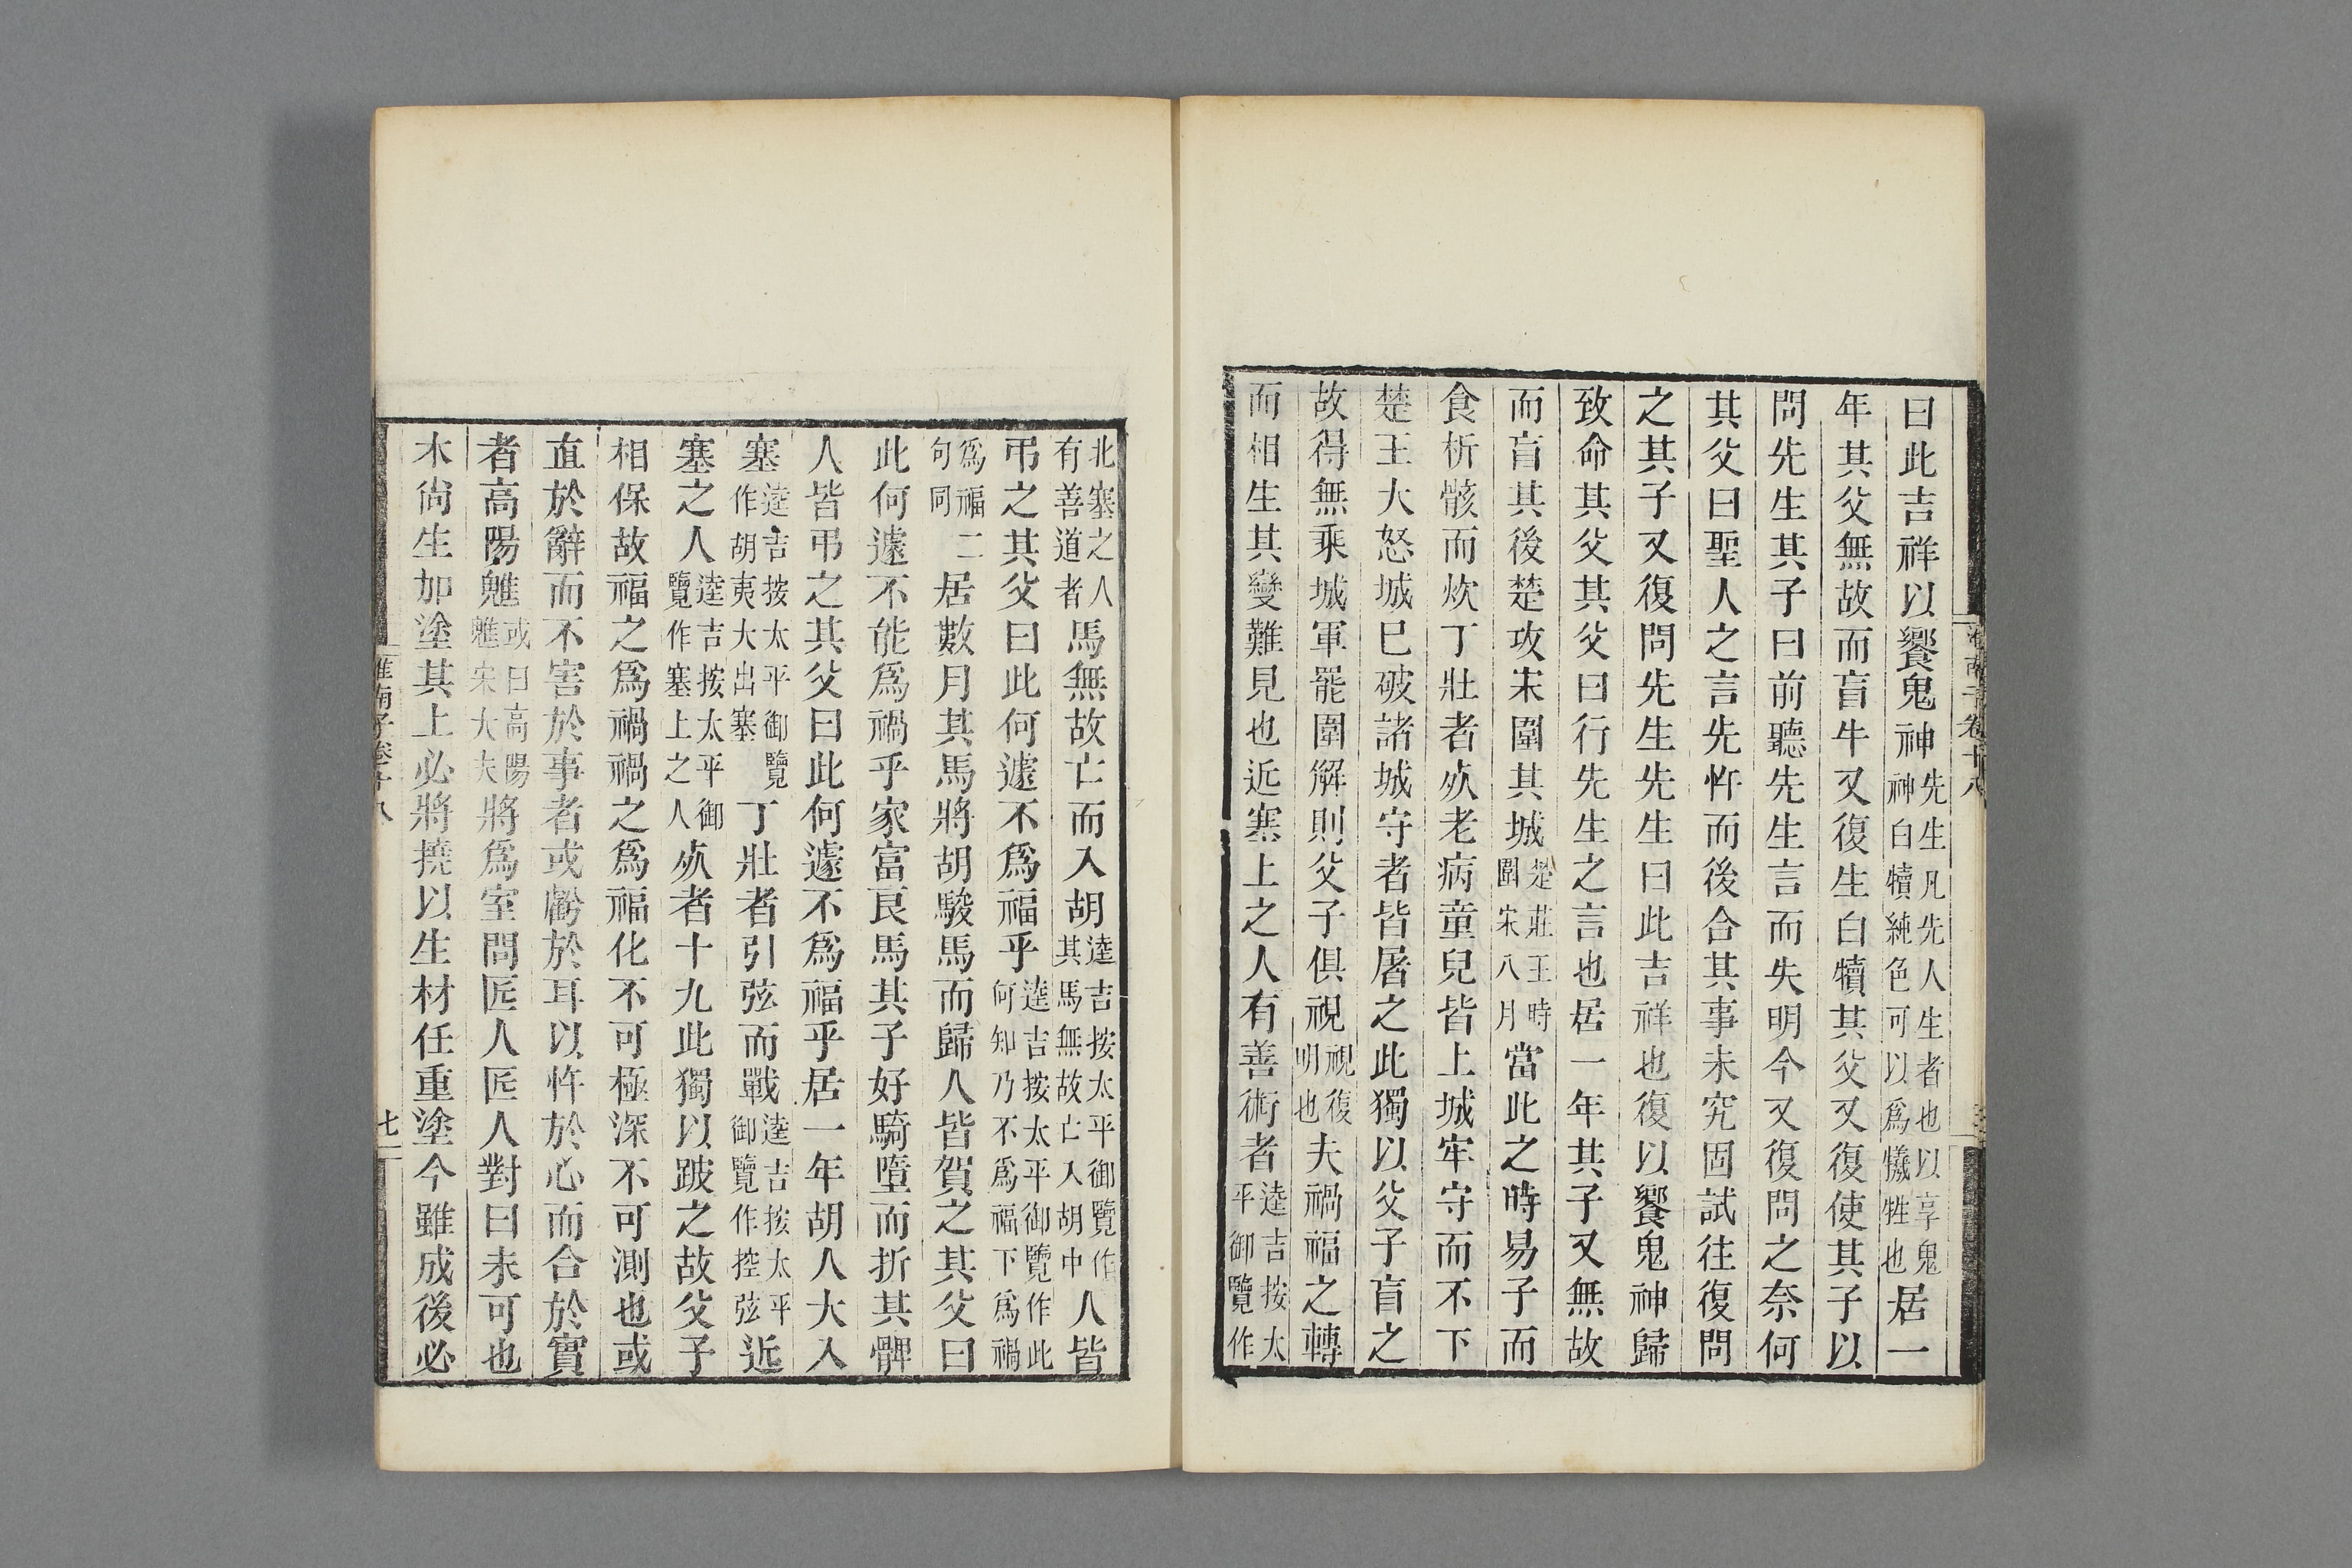 曰此吉祥以饗鬼神先生凡先人生者也以享鬼神白犢純色可以爲犧牲也居一
年其父無故而盲牛又復生白犢其父又復使其子以
問先生其子曰前聽先生言而失明今又復問之奈何
其父曰聖人之言先忤而後合其事未究固試往復問
之其子又復問先生先生曰此吉祥也復以饗鬼神歸
致命其父其父曰行先生之言也居一年其子又無故
而盲其後楚攻宋圍其城楚莊王時圍宋八月當此之時易子而
食析骸而炊丁壯者死老病童兒皆上城牢守而不下
楚王大怒城巳破諸城守者皆屠之此獨以父子盲之
故得無乘城軍罷圍解則父子俱視視復明也夫禍福之轉
而相生其變難見也近塞上之人有善術者逵吉按太平御覽作
北塞之人有善道者馬無故亡而入胡逵吉按太平御覽作其馬無故亡入胡中人皆
弔之其父曰此何遽不爲福乎逵吉按太平御覽作此何知乃不爲福下爲禍
爲福二句同居數月其馬將胡駿馬而歸人皆賀之其父曰
此何遽不能爲禍乎家富良馬其子好騎墮而折其髀
人皆弔之其父曰此何遽不爲福乎居一年胡人大入
塞逵吉按太平御覽作胡夷大出塞丁壯者引弦而戰逵吉按太平御覽作控弦近
塞之人逵吉按太平御覽作塞上之人死者十九此獨以跛之故父子
相保故福之爲禍禍之爲福化不可極深不可測也或
直於辭而不害於事者或虧於耳以忤於心而合於實
者高陽魋或曰高陽魋宋大夫將爲室問匠人匠人對曰未可也
木尙生加塗其上必將撓以生材任重塗今雖成後必
淮南子卷十八
七